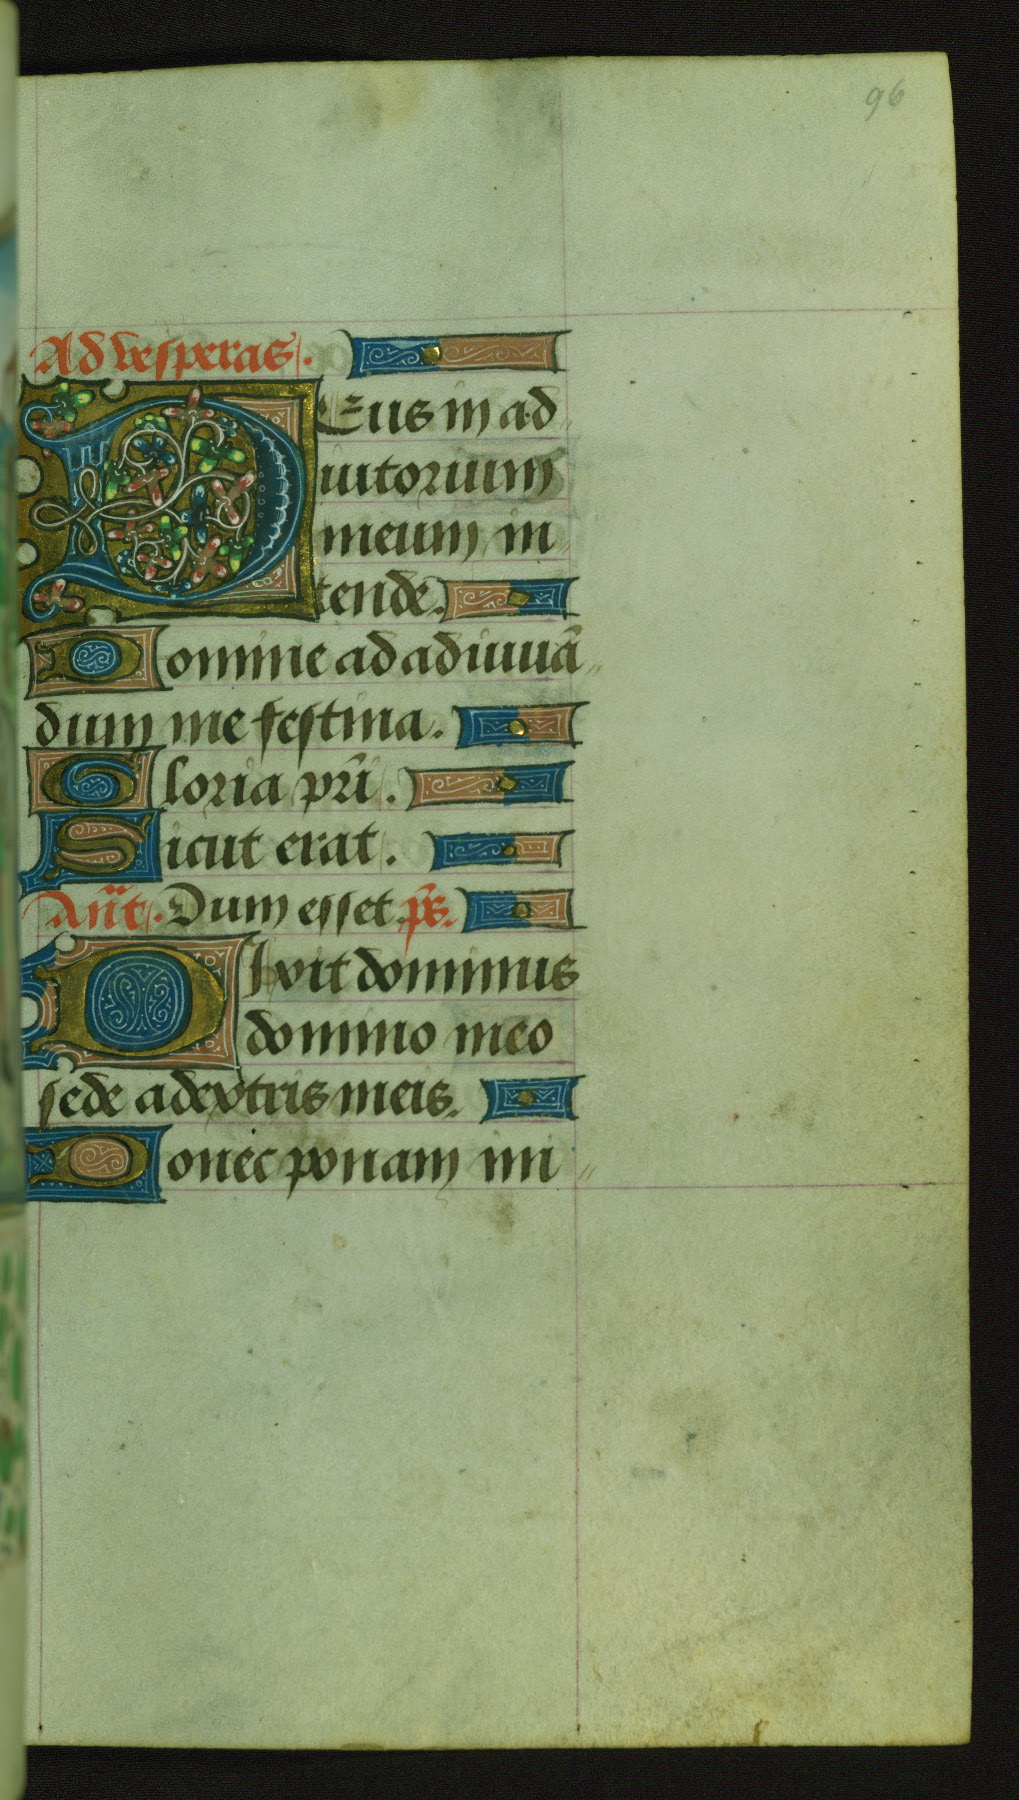 96
Ad vesperas.
DEus in ad
iutorium
meum in
tende.
Domine ad adiuuā
dum me festina.
Gloria pr̄i.
Sicut erat.
Añt. Dum esset. p̄s.
DIxit dominus
domino meo
sede a dextris meis.
Donec ponam ini